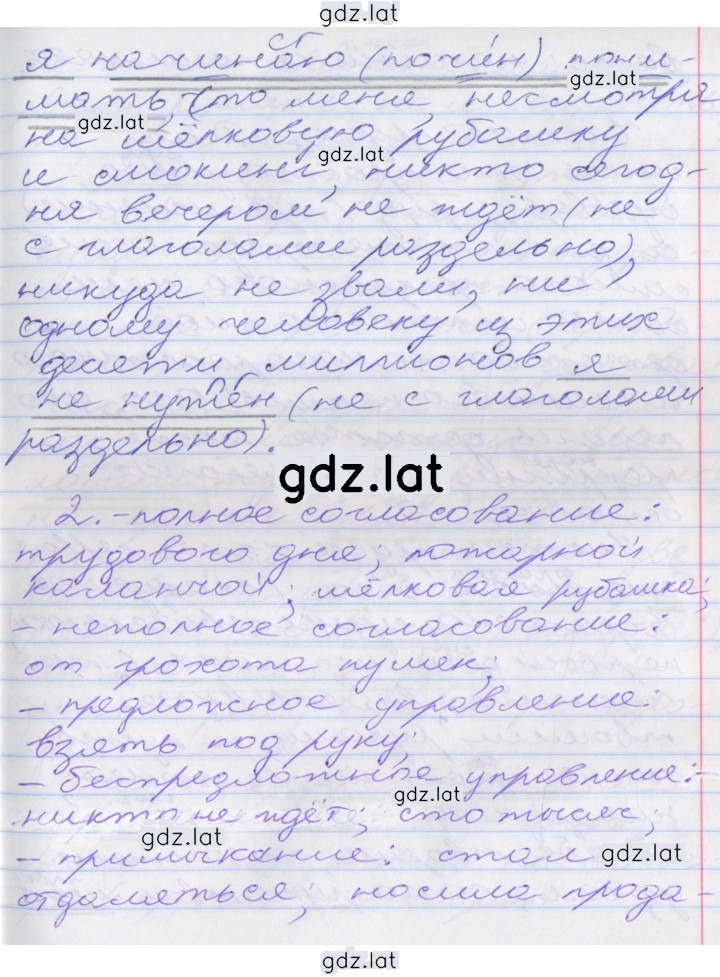 gdz.lat
я начинаю (почин) пони-
gdz.lat
мать, что меня, несмотря
gdz.lat
на шёлковую рубашку
gdz.lat
и смокинг, никто сегод-
ня вечером не ждёт (не
с глаголами раздельно),
никуда не звали, ни
одному человеку из этих
десяти миллионов я
не нужен (не с глаголами
раздельно).
gdz.lat
2. - полное согласование:
трудового дня; пожарной
каланчой; шёлковая рубашка;
- неполное согласование:
от грохота пушек;
- предложное управление:
взять под руку;
- беспредложное управление:-
gdz.lat
никто не ждёт; сто тысяч;
gdz.lat
- примыкание: стал
gdz.lat
отдаляться; носила прода-
gdz.lat